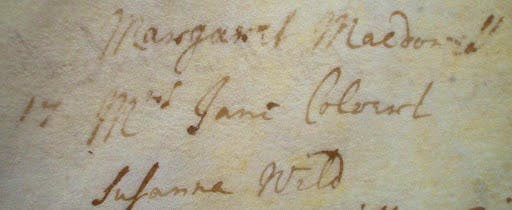 Margaret Macdonall
17 Mrs Jane Colvert
Susanna Wild